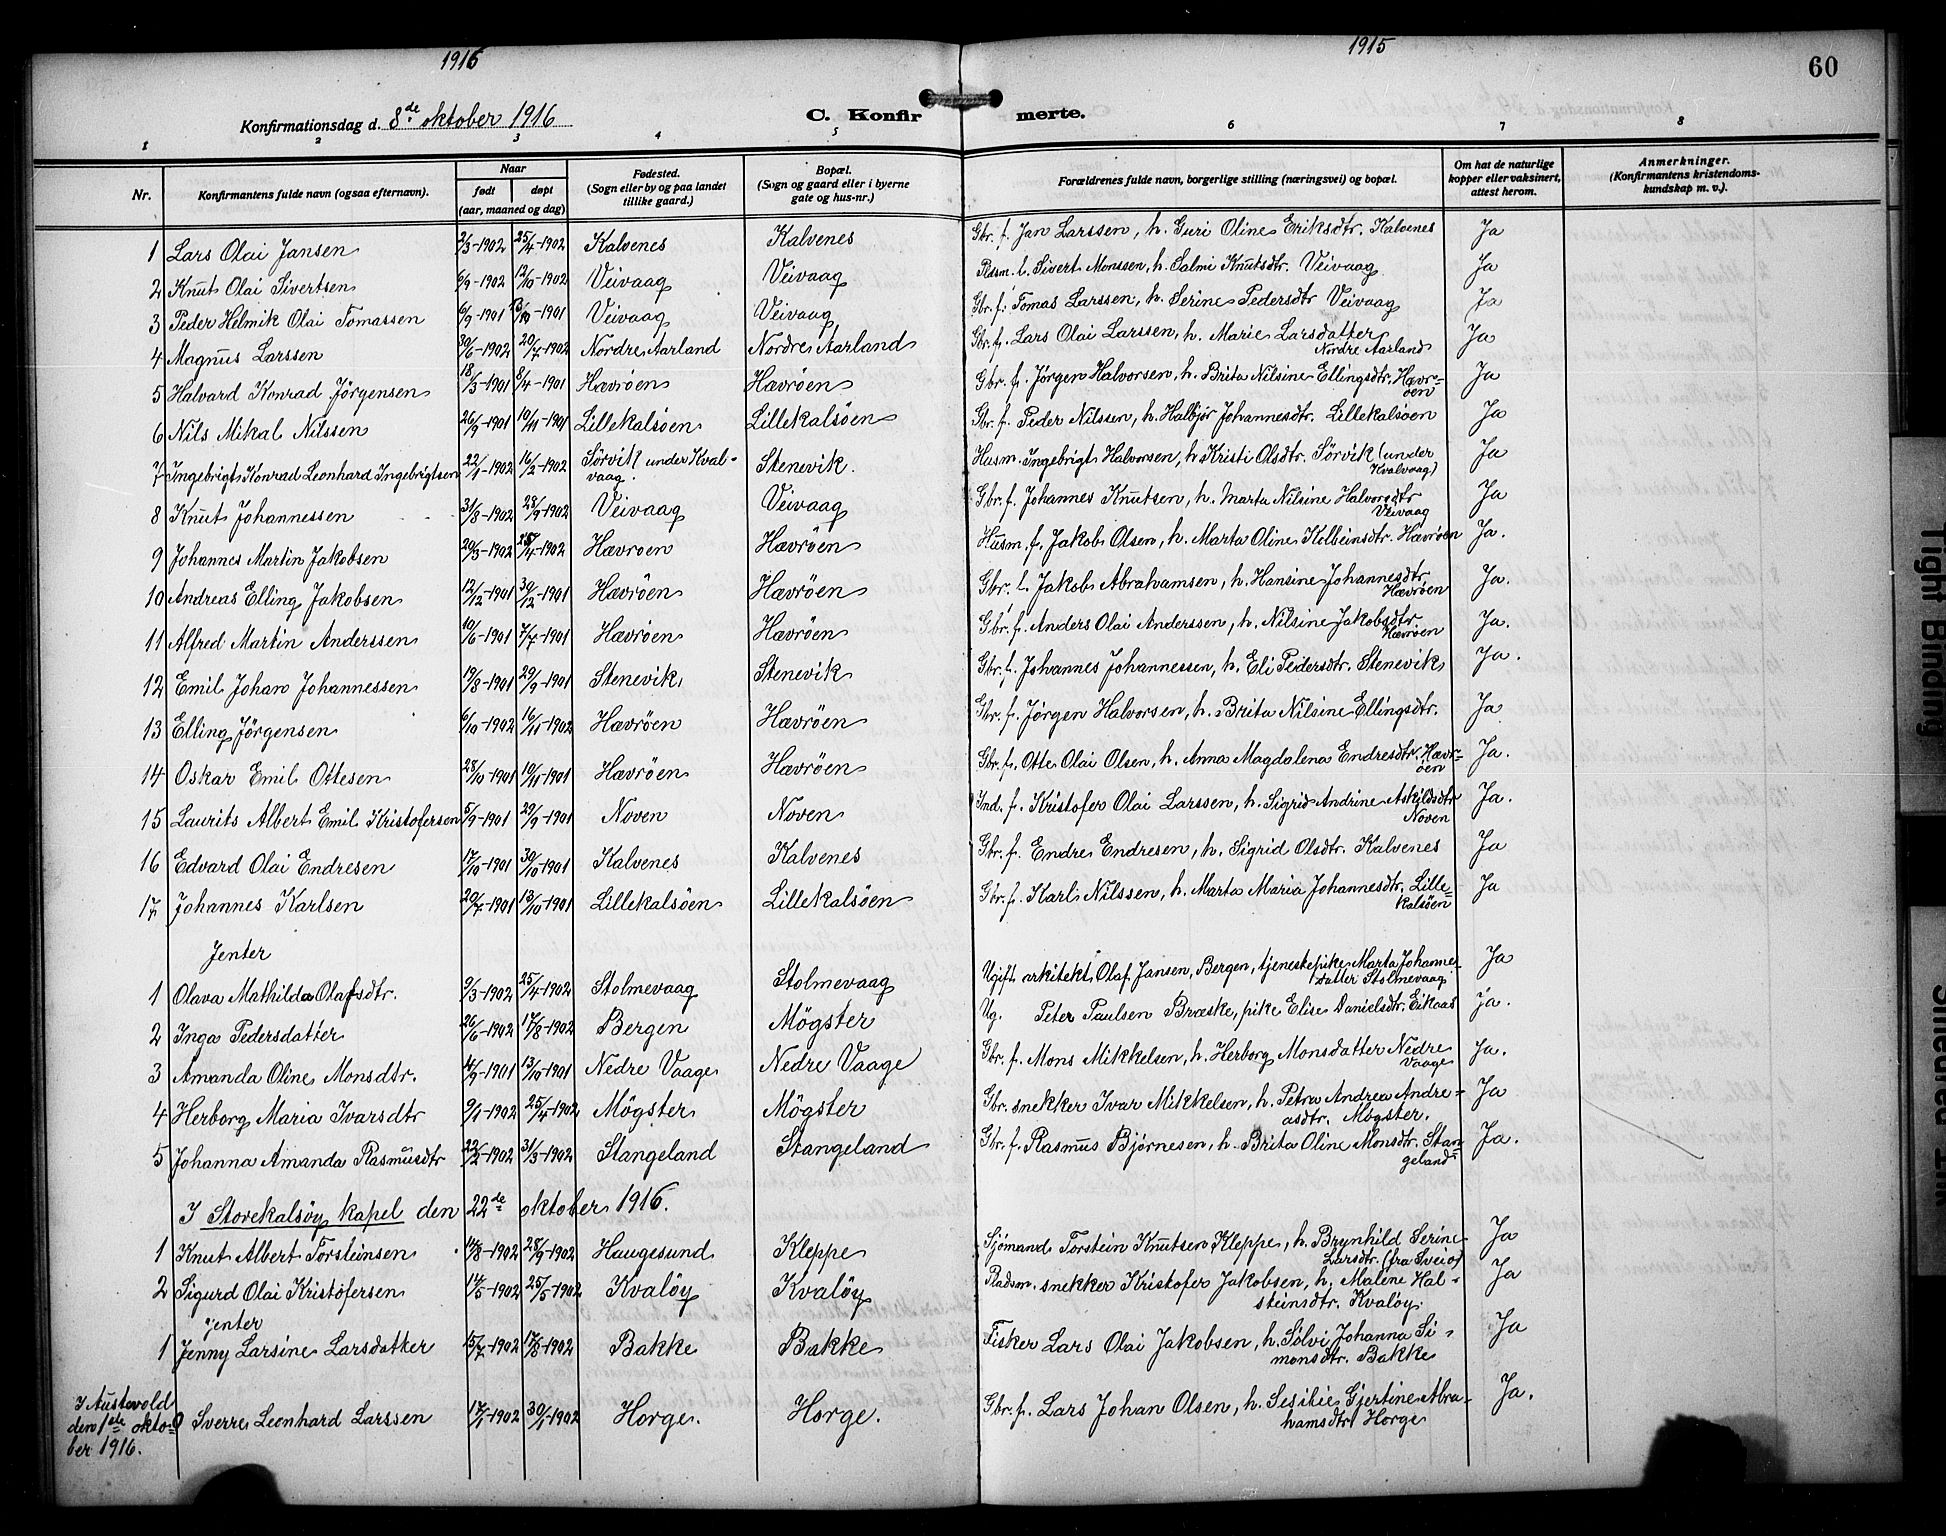 1916
1915
60
Konfirmationsdag d. 8de oktober 1916
C. Konfirmerte.
1 2 3 4 5 6 7 8
Nr.
Konfirmantens fulde navn (ogsaa efternavn).
Naar
født
døpt
(aar, maaned og dag)
Fødested.
(Sogn eller by og paa landet
tillike gaard.)
Bopæl.
(Sogn og gaard eller i byerne
gate og hus-nr.)
Forældrenes fulde navn, borgerlige stilling (næringsvei) og bopæl.
Om hat de naturlige
kopper eller vaksinert,
attest herom.
Anmerkninger.
(Konfirmantens kristendoms-
kundskap m. v.).
1 Lars Olai Jansen 2/3-1902 25/4-1902 Kalvenes Kalvenes Gbr. f. Jan Larssen, h. Guri Oline Eriksdtr. Kalvenes Ja
2 Knut Olai Sivertsen 6/9-1902 12/10-1902 Veivaag Veivaag Plsm. l. Sivert Monssen, h. Salmi Knutsdtr. Veivaag Ja
3 Peder Helmik Olai Tomassen 6/9-1901 13/10-1901 Veivaag Veivaag Gbr. f. Tomas Larssen, h. Serine Pedersdtr Veivaag Ja
4 Magnus Larssen 30/6-1902 20/7-1902 Nordre Aarland Nordre Aarland Gbr. f. Lars Olai Larssen, h. Marie Larsdatter Ja
Nordre Aarland
5 Halvard Konrad Jørgensen 18/3-1901 8/4-1901 Hævröen Hævröen Gbr. f. Jørgen Halvorsen, h. Brita Nilsine Ellingsdtr. Hævr= Ja
öen
6 Nils Mikal Nilssen 26/9-1901 10/11-1901 Lillekalsöen Lillekalsöen Gbr. f. Peder Nilssen, h. Halbjør Johannesdtr. Lillekalsöen Ja
7 Ingebrigt Konrad Leonhard Ingebrigtsen 22/1-1902 16/2-1902 Sörvik under Kval- Stenevik. Husm. Ingebrigt Halvorsen, h. Kristi Olsdtr. Sörvik (under Ja
vaag. Kvalvaag)
8 Knut Johannessen 31/8-1902 28/9-1902 Veivaag Veivaag Gbr. f. Johannes Knutsen, h. Marta Nilsine Halvorsdtr Ja
Veivaag
9 Johannes Martin Jakobsen 20/3-1902 25/4-1902 Hævröen Hævröen Husm. f. Jakob Olsen, h. Marta Oline Kolbeinsdtr. Hævröen Ja.
10 Andreas Elling Jakobsen 12/12-1901 30/12-1901 Hævröen Hævröen Gbr. l. Jakob Abrahamsen, h. Hansine Johannesdtr. Ja.
Hævröen
11 Alfred Martin Anderssen 10/6-1901 7/7-1901 Hævröen Hævröen Gbr. f. Anders Olai Anderssen, h. Nilsine Jakobsdtr. Ja.
Hævröen
12 Emil Johan Johannessen 19/8-1901 29/9-1901 Stenevik Stenevik Gbr. f. Johannes Johannessen, h. Eli Pedersdtr. Stenevik Ja.
13 Elling Jörgensen 6/10-1902 16/11-1902 Hævröen Hævröen Gbr. f. Jørgen Halvorsen, h. Brita Nilsine Ellingsdtr. Ja
14 Oskar Emil Ottesen 28/10-1901 10/11-1901 Hævröen Hævröen Gbr. f. Otte Olai Olsen, h. Anna Magdalena Endresdtr. Hævr= Ja.
öen
15 Laurits Albert Emil Kristofersen 5/9-1901 29/9-1901 Noven Noven Ind. f. Kristofer Olai Larssen, h. Sigrid Andrine Askildsdtr Ja.
Noven
16 Edvard Olai Endresen 17/10-1901 30/10-1901 Kalvenes Kalvenes Gbr. f. Endre Endresen, h. Sigrid Olsdtr. Kalvenes Ja
17 Johannes Karlsen 20/7-1901 13/10-1901 Lillekalsöen Lillekalsöen Gbr. f. Karl Nilssen, h. Marta Maria Johannesdtr. Lille= Ja
kalsöen
Jenter
1 Olava Mathilda Olafsdtr. 9/3-1902 25/4-1902 Stolmevaag Stolmevaag Ugift arkitekt Olaf Jansen, Bergen, tjenestepike Marta Johannes- Ja
datter Stolmevaag
2 Inga Pedersdatter 26/6-1902 17/8-1902 Bergen Mögster Ug. Peter Paulsen Bræske, pike Elise Danielsdtr. Eikaas Ja.
3 Amanda Oline Monsdtr. 4/9-1901 13/10-1901 Nedre Vaage Nedre Vaage Gbr. f. Mons Mikkelsen, h. Herborg Monsdatter Nedre Ja.
Vaage
4 Herborg Maria Ivarsdtr 9/1-1902 25/4-1902 Mögster Mögster Gbr. snekker Ivar Mikkelsen, h. Petra Andrea Andre= Ja
asdtr. Mögster.
5 Johanna Amanda Rasmusdtr 22/2-1902 31/3-1902 Stangeland Stangeland Gbr. f. Rasmus Bjørnesen, h. Brita Oline Monsdtr. Stan= Ja.
geland
I Storekalsöy kapel den 22de oktober 1916.
1 Knut Albert Torsteinsen 14/8-1902 28/9-1902 Haugesund Kleppe Sjömand Torstein Knutsen Kleppe, h. Brynhild Serine Ja
Larsdtr. (fra Sveio)
2 Sigurd Olai Kristofersen 14/5-1902 25/5-1902 Kvalöy Kvalöy Pladsm. snekker Kristofer Jakobsen, h. Malene Hal- Ja
steinsdtr. Kvalöy.
Jenter
1 Jenny Larsine Larsdatter 15/7-1902 17/8-1902 Bakke Bakke Fisker Lars Olai Jakobsen, h. Sölvi Johanna Si- Ja
monsdtr. Bakke
I Austevold
den 1ste okto-
ber 1916.
Sverre Leonhard Larssen 17/1-1902 30/1-1902 Horge. Horge. Gbr. f. Lars Johan Olsen, h. Sesilie Gjertine Abra- Ja.
hamsdtr Horge
Tight Binding
Smeared Ink